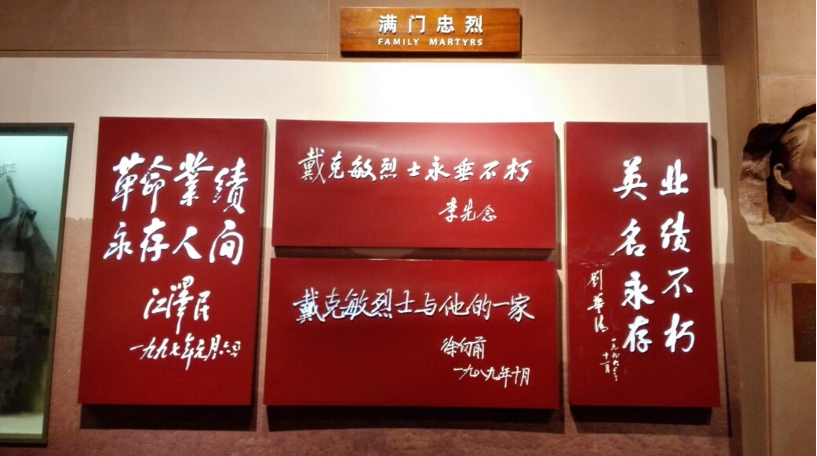 满门忠烈
FAMILY MARTYRS
革命業績
永存人间
江澤民
一九九七年元月六日
戴克敏烈士永垂不朽
李先念
戴克敏烈士与他的一家
徐向前
一九八九年十月
业绩不朽
英名永存
劉華清